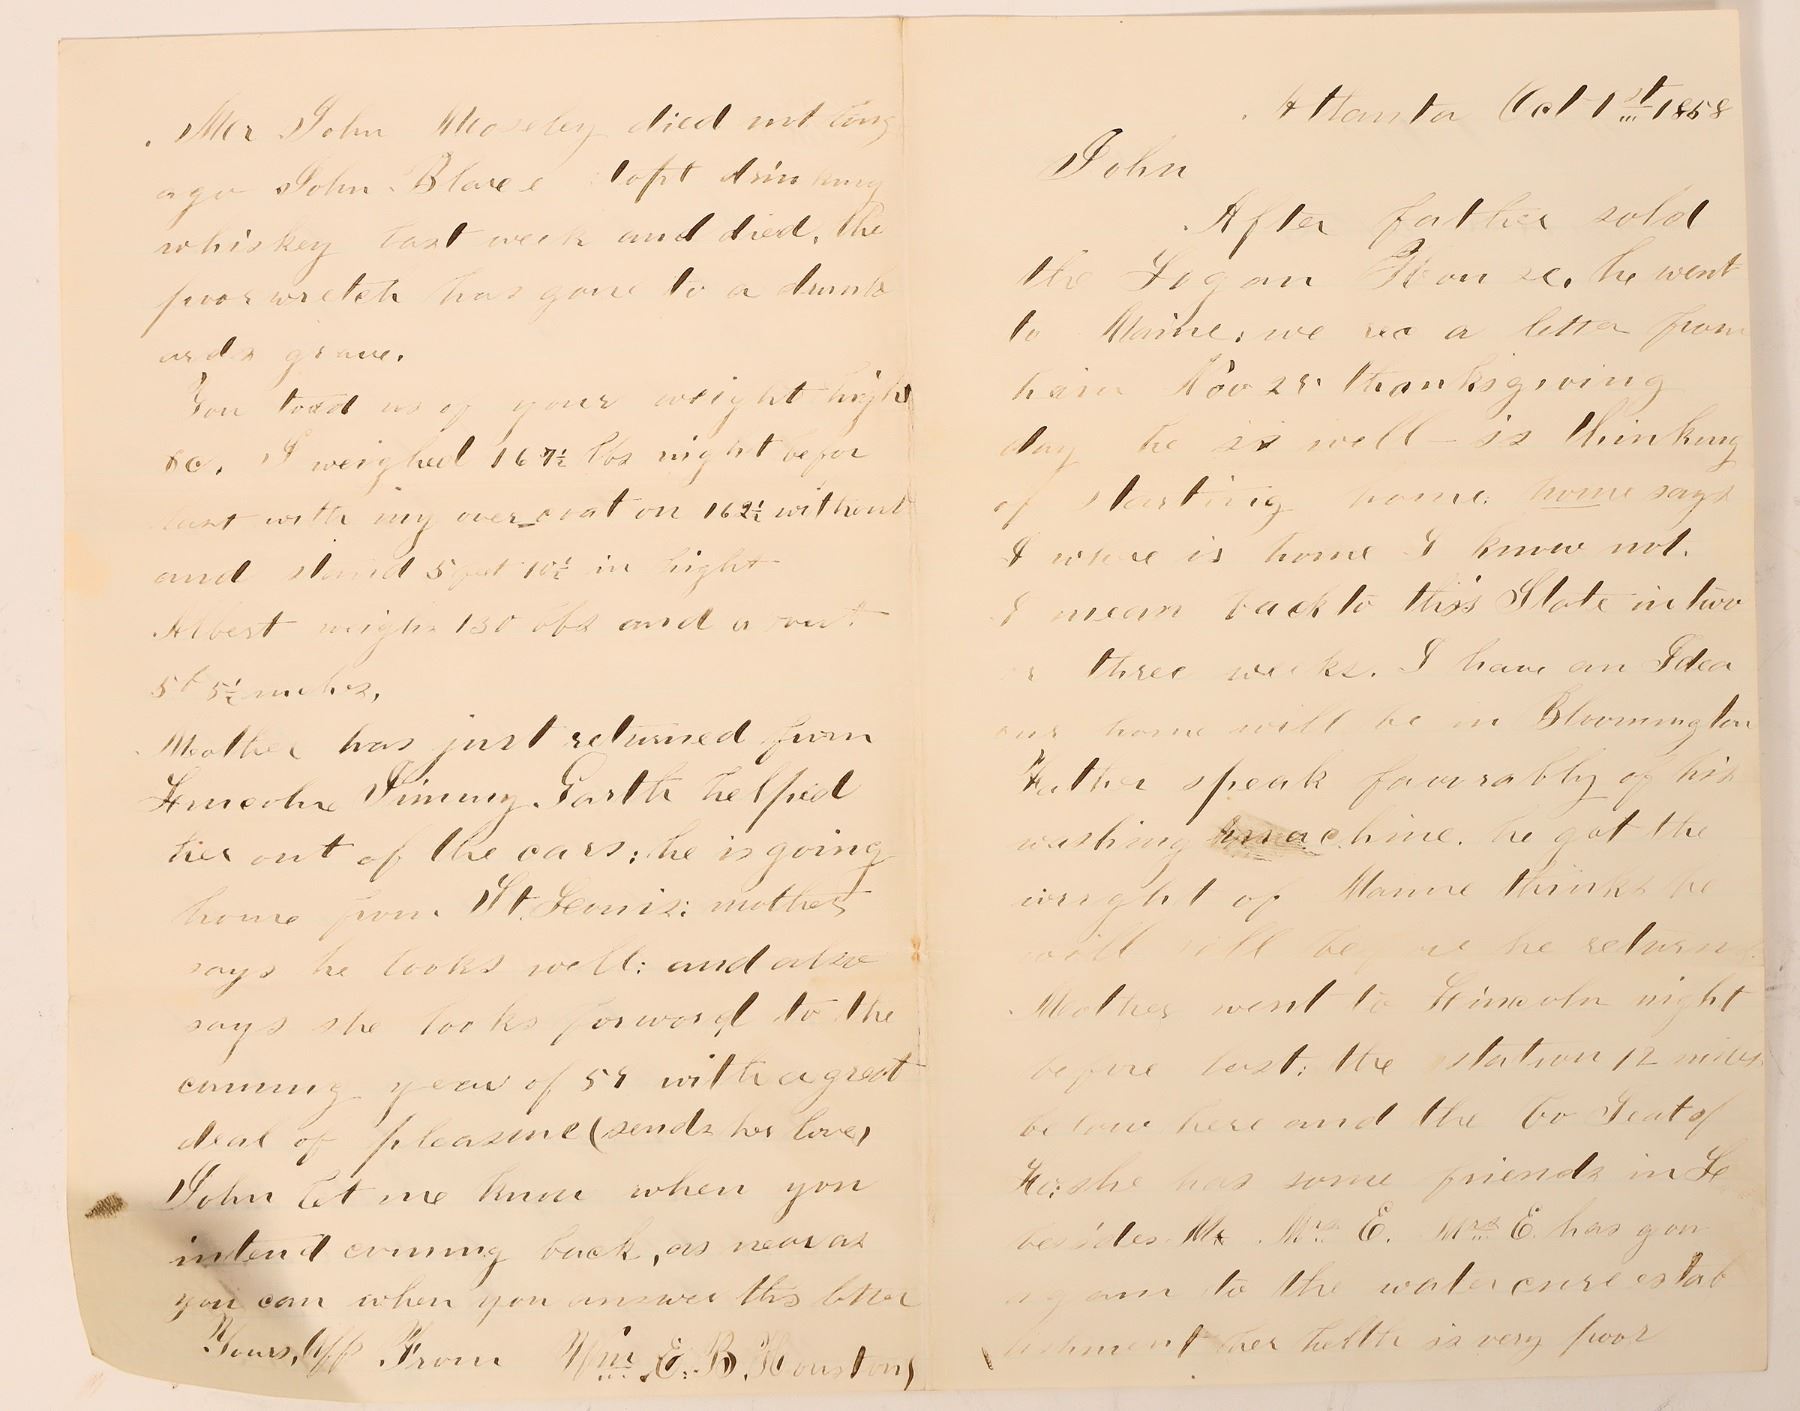 Atlanta Oct 1st 1858
John
After father sold
the Logan House, he went
to Maine, we rec a letter from
him Nov 25 thanksgiving
day he is well - is thinking
of starting home; home says
I where is home I know not.
I mean back to this State in two
or three weeks. I have an Idea
our home will be in Bloomington
Father speak favorably of his
washing machine. he got the
wright of Maine thinks he
will sell before he returns
Mother went to Lincoln night
before last; the station 12 miles
below here and the Co Seat of
she has some friends in
besides Mr Mrs E. Mrs E. has gon
again to the water cure estab
ishment her helth is very poor
Mr John Moseley died not long
ago John toft drinking
whiskey last week and died, the
poor wretch has gone to a drunk
ards grave.
You told us of your weight hight
&c. I weighed 167½ lbs night befor
last with my over coat on 162½ without
and stand 5 feet 10½ in hight
Albert weighs 130 lbs and about
5f 5½ inches,
Mother has just returned from
Lincoln Jimmy Garth helped
her out of the cars; he is going
home from St. Louis; mother
says he looks well; and also
says she looks forword to the
coming year of 59 with a great
deal of pleasure (sends her love,
John let me know when you
intend coming back, as near as
you can when you answer this letter
Yours, Aff From Wm E. B. Houston,